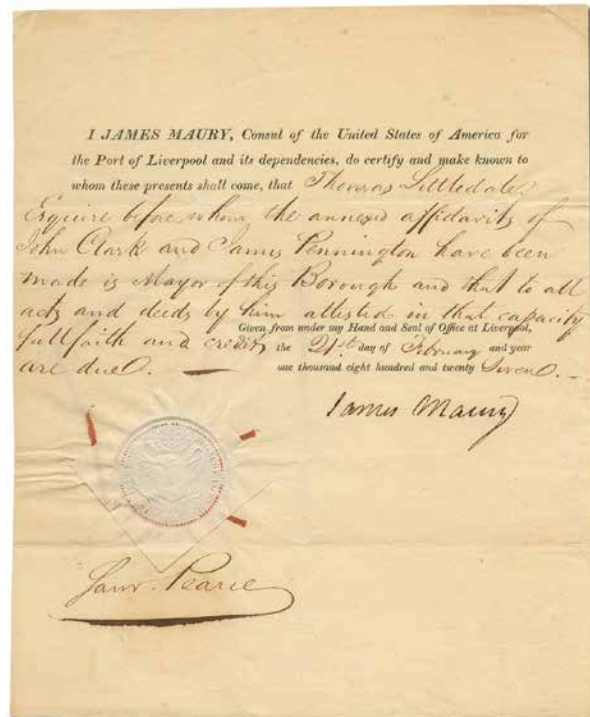 I JAMES MAURY, Consul of the United States of America for
the Port of Liverpool and its dependencies, do certify and make known to
whom these presents shall come, that Thomas Littledale
Esquire before whom the annexed affidavits of
John Clark and James Pennington have been
made is Mayor of this Borough and that to all
acts and deeds by him attested in that capacity
full faith and credit
are due. —
Given from under my Hand and Seal of Office at Liverpool,
the 21st day of February and year
one thousand eight hundred and twenty Seven. —
James Maury
Pearce